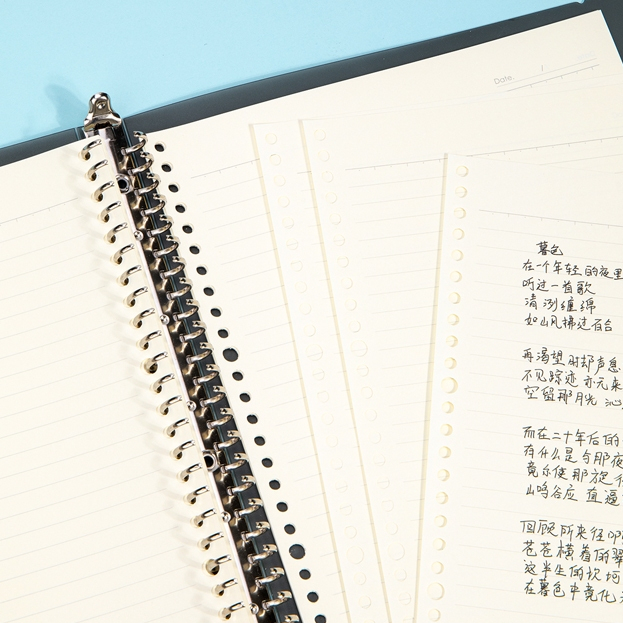 Date
暮色
在一个年轻的夜里
听过一首歌
清冽缠绵
如山风拂过百合
再渴望时却声息
不见踪迹 亦无来
空留那月光 沁
而在二十年后的
有什么是与那夜
竟尔使那旋
山鸣谷应 直逼
回顾所来径
苍苍横着的翠
这半生的坎坷
在暮色中竟化